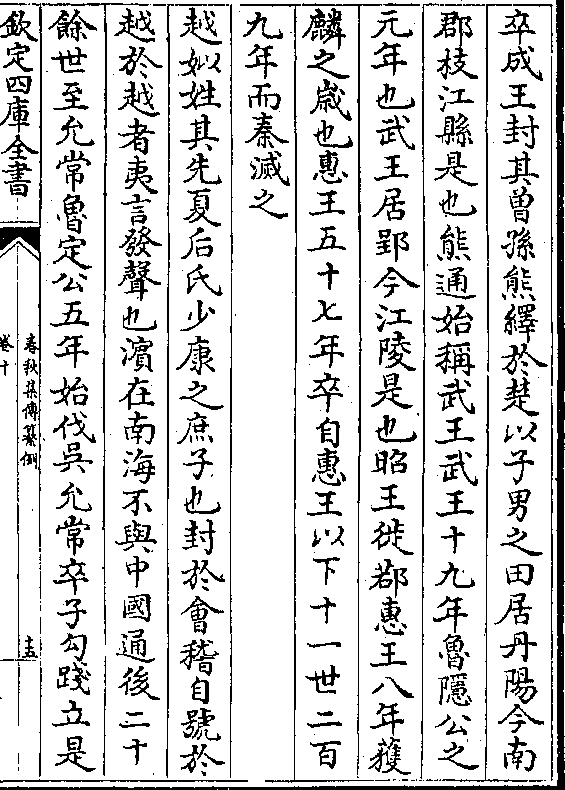 卒成王封其曾孫熊繹於楚以子男之田居丹陽今南
郡枝江縣是也熊通始稱武王武王十九年魯隱公之
元年也武王居郢今江陵是也昭王徙鄀惠王八年獲
麟之歳也惠王五十七年卒自惠王以下十一世二百
九年而秦滅之
越姒姓其先夏后氏少康之庶子也封於會稽自號於
越於越者夷言發聲也濱在南海不與中國通後二十
餘世至允常魯定公五年始伐吳允常卒子勾踐立是
欽定四庫全書
春秋集傳纂例
卷十
十五